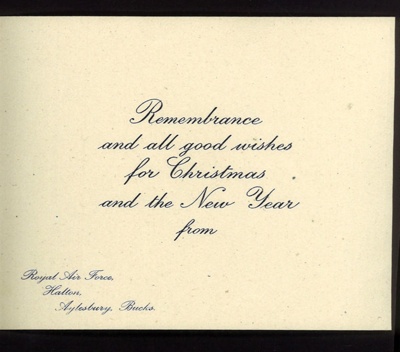 Remembrance
and all good wishes
for Christmas
and the New Year
from
Royal Air Force,
Halton,
Aylesbury, Bucks.